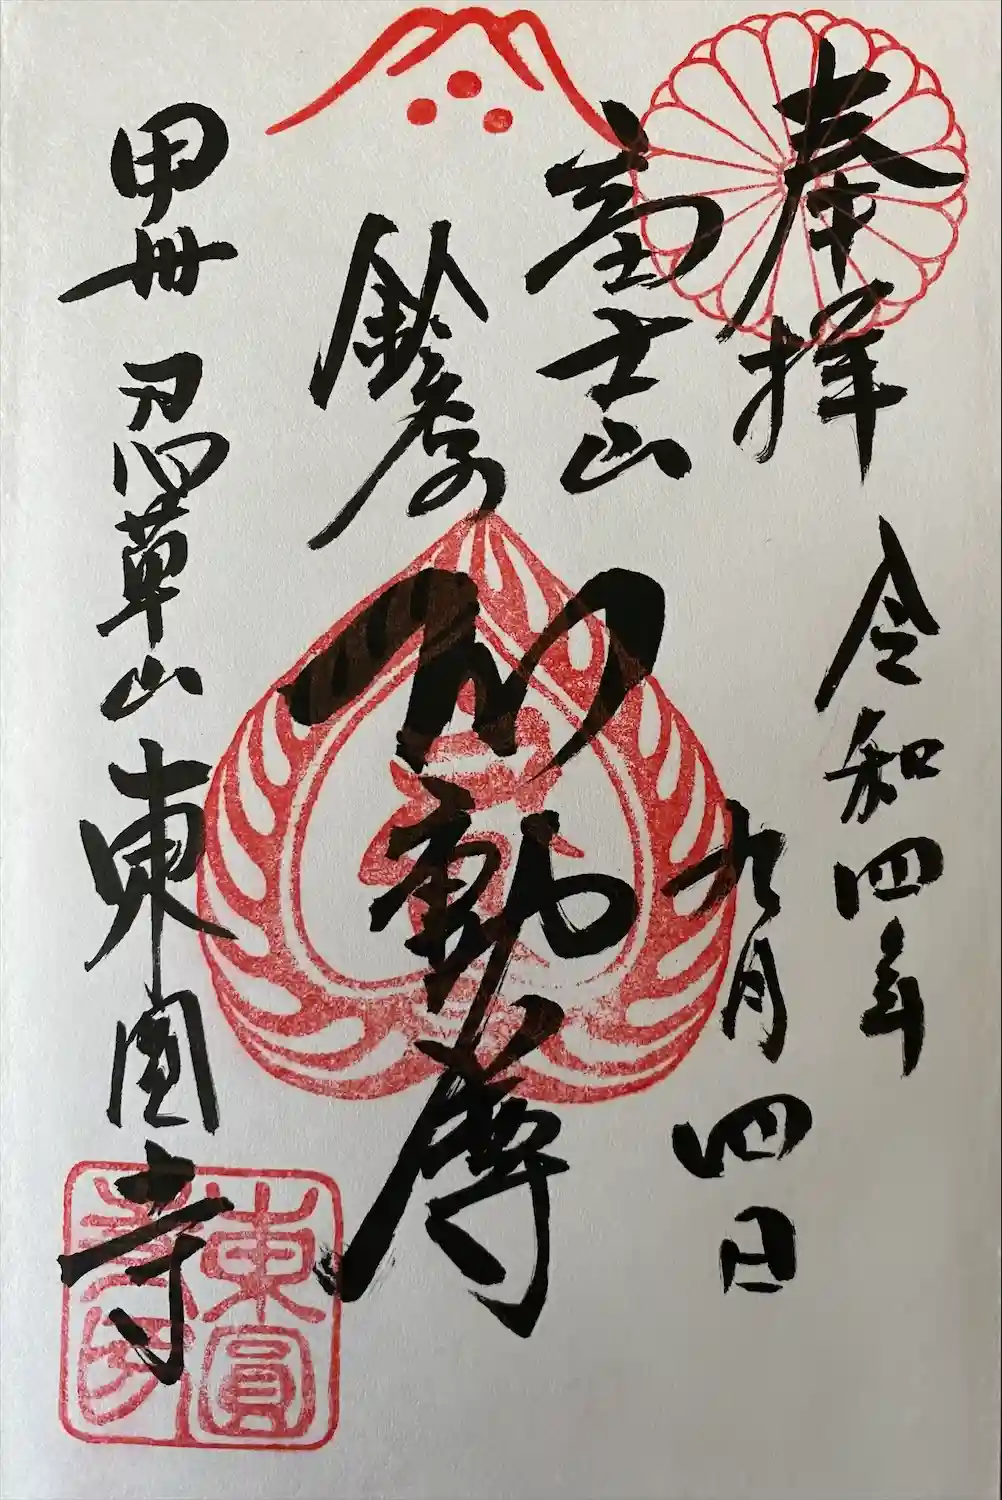 奉拝
令和四年
九月四日
富士山
不動尊
甲州 忍草山 東圓寺
東圓
寺印